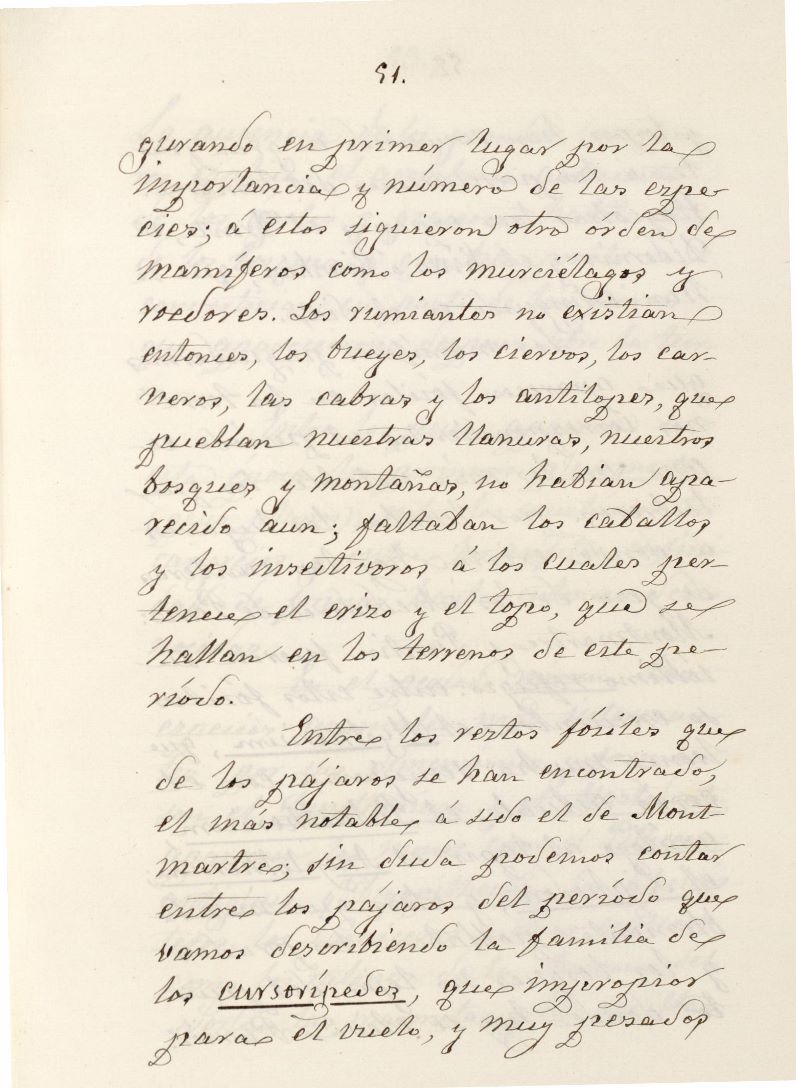 51.
gurando en primer lugar por la
importancia y número de las espe-
cies; á estos siguieron otro órden de
mamíferos como los murciélagos y
roedores. Los rumiantes no existian
entonces, los bueyes, los ciervos, los car-
neros, las cabras y los antilopes, que
pueblan nuestras llanuras, nuestros
bosques y montañas, no habian apa-
recido aun; faltaban los caballos
y los insectívoros á los cuales per-
tenece el erizo y el topo, que se
hallan en los terrenos de este pe-
ríodo.
Entre los restos fósiles que
de los pájaros se han encontrado,
el más notable á sido el de Mont-
martre; sin duda podemos contar
entre los pájaros del período que
vamos describiendo la familia de
los cursorípedes, que impropior
para el vuelo, y muy pesados